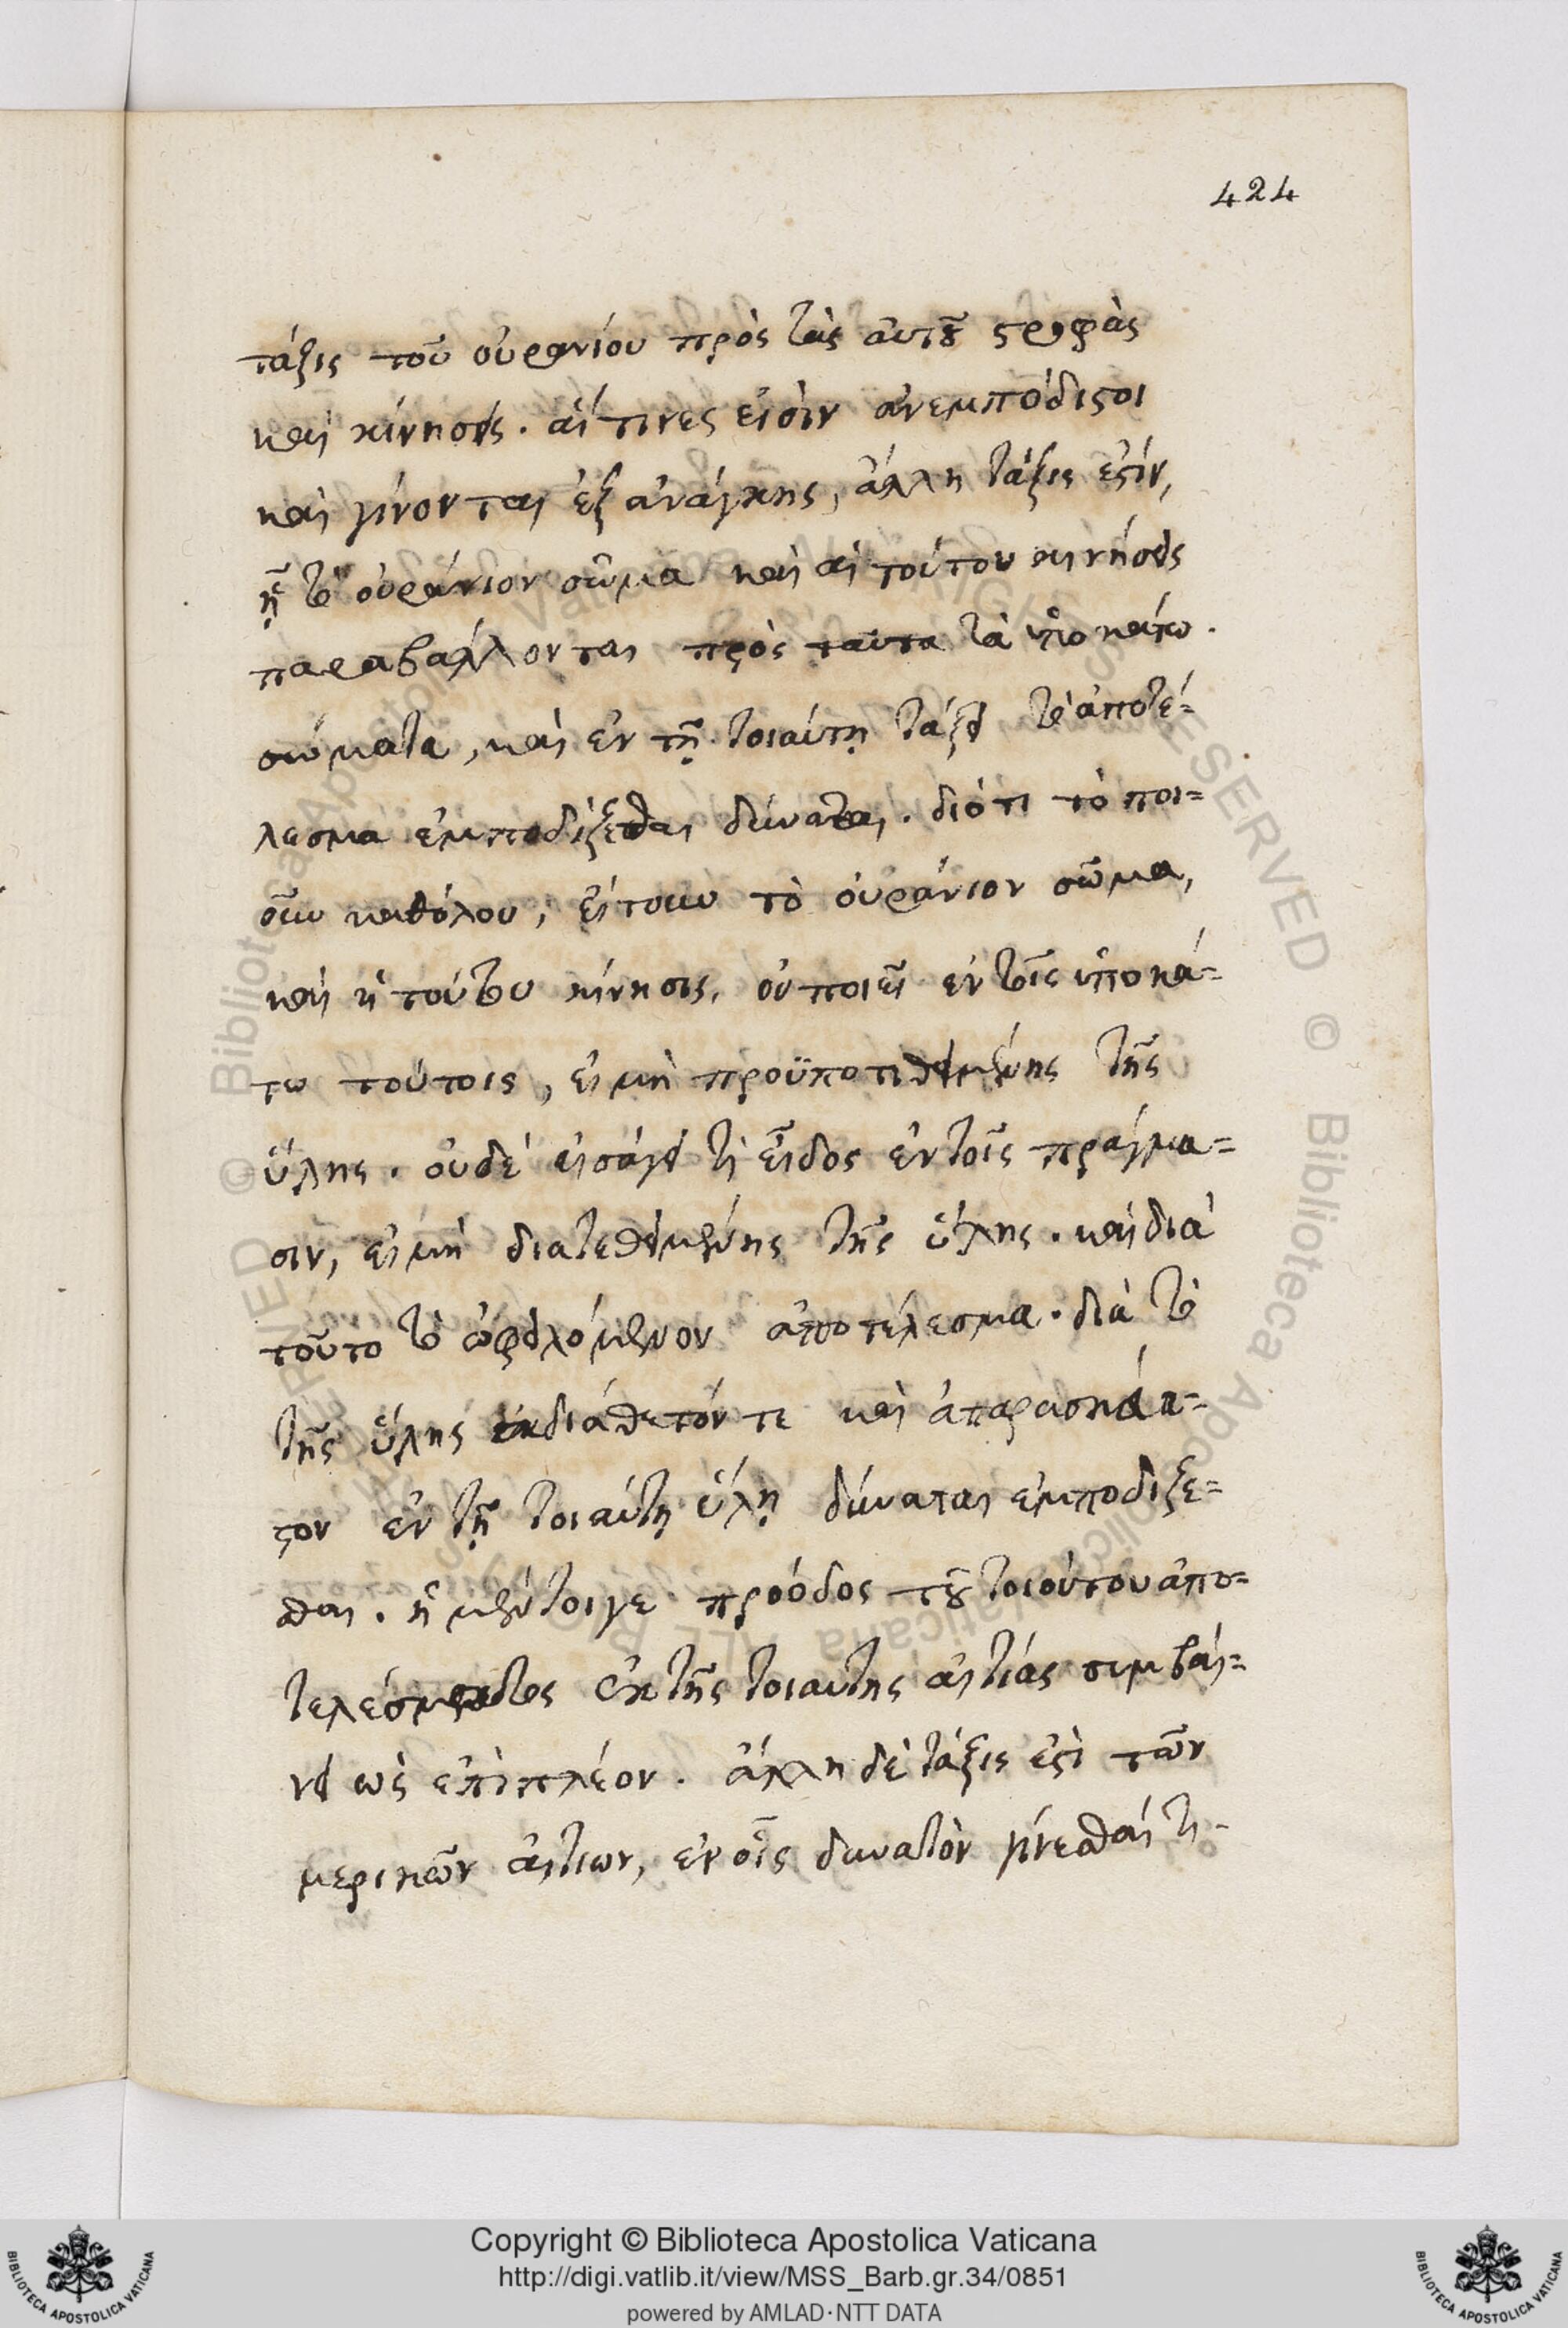 424
τάξις τοῦ οὐρανίου πρὸς τὰς αὐτοῦ στροφὰς
καὶ κίνησεις. αἵ τινες εἰσὶν ἀνεμπόδιστοι
καὶ γίνονται ἐξ ἀνάγκης, ἄλλη τάξις ἐστίν,
ᾗ τὸ οὐράνιον σῶμα καὶ αἱ τούτου κινήσεις
παραβάλλονται πρὸς ταῦτα τὰ ὑποκάτω
σώματα, καὶ ἐν τῇ τοιαύτῃ τάξει τὸ ἀποτέ=
λεσμα ἐμποδίζεσθαι δύναται. διότι τὸ ποι=
οῦν καθόλου, εἴτουν τὸ οὐράνιον σῶμα,
καὶ ἡ τούτου κίνησις, οὐ ποιεῖ ἐν τοῖς ὑποκά=
τω τούτοις, εἰ μὴ προϋποτιθεμένης τῆς
ὕλης. οὐδὲ εἰσάγει τὶ εἶδος ἐν τοῖς πράγμα=
σιν, εἰ μὴ διατεθειμένης τῆς ὕλης. καὶ διὰ
τοῦτο τὸ ὠφειλόμενον ἀποτέλεσμα. διὰ τὸ
τῆς ὕλης ἀδιάθετόν τε καὶ ἀπαράσκεύα=
στον ἐν τῇ τοιαύτῃ ὕλῃ δύναται ἐμποδίζε=
σθαι. ἡ μέντοιγε πρόοδος τοῦ τοιούτου ἀπο=
τελέσματος ἐκ τῆς τοιαύτης αἰτίας συμβαί=
νει ὡς ἐπὶ πλέον. ἄλλη δὲ τάξις ἐστὶ τῶν
μερικῶν αἰτίων, ἐν οἷς δυνατὸν γίνεσθαί τι
© Biblioteca Apostolica Vaticana ALL RIGHTS RESERVED
Copyright © Biblioteca Apostolica Vaticana
http://digi.vatlib.it/view/MSS_Barb.gr.34/0851
powered by AMLAD·NTT DATA
BIBLIOTECA APOSTOLICA VATICANA
BIBLIOTECA APOSTOLICA VATICANA